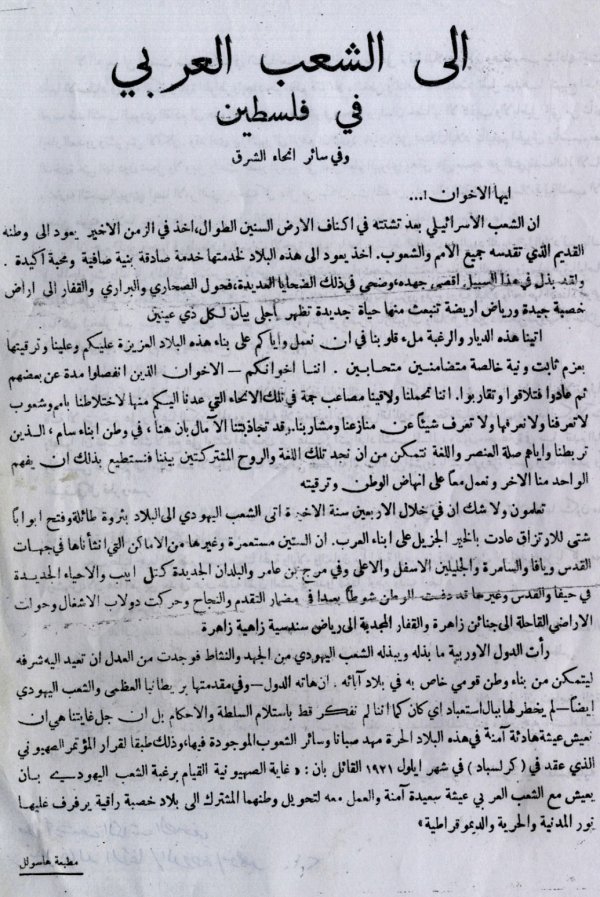 الى الشعب العربي
في فلسطين
وفي سائر انحاء الشرق
ايها الاخوان !...
ان الشعب الاسرائيلي بعد تشتته في اكناف الارض السنين الطوال، اخذ في الزمن الاخير يعود الى وطنه
القديم الذي تقدسه جميع الامم والشعوب. اخذ يعود الى هذه البلاد لخدمتها خدمة صادقة بنية صافية ومحبة اكيدة .
ولقد بذل في هذا السبيل اقصى جهده، وضحى في ذلك الضحايا العديدة، فحول الصحاري والبراري والقفار الى اراض
خصبة جيدة ورياض اريضة تنبعث منها حياة جديدة تظهر بأجلى بيان لكل ذي عينين
اتينا هذه الديار والرغبة ملء قلوبنا في ان نعمل واياكم على بناء هذه البلاد العزيزة عليكم وعلينا وترقيتها
بعزم ثابت ونية خالصة متضامنين متحابين . اننا اخوانكم — الاخوان الذين انفصلوا مدة عن بعضهم
ثم عادوا فتلاقوا وتقاربوا. اننا تحملنا ولاقينا مصاعب جمة في تلك الانحاء التي عدنا اليكم منها لاختلاطنا بامم وشعوب
لا تعرفنا ولا نعرفها ولا تعرف شيئاً عن منازعنا ومشاربنا. وقد تجاذبتنا الآمال بان هنا، في وطن ابناء سام، الذين
تربطنا واياهم صلة العنصر واللغة نتمكن من ان نجد تلك اللغة والروح المشتركتين بيننا فنستطيع بذلك ان يفهم
الواحد منا الاخر ونعمل معاً على انهاض الوطن وترقيته
تعلمون ولا شك ان في خلال الاربعين سنة الاخيرة اتى الشعب اليهودي الى البلاد بثروة طائلة وفتح ابواباً
شتى للارتزاق عادت بالخير الجزيل على ابناء العرب. ان الستين مستعمرة وغيرها من الاماكن التي انشأناها في جهات
القدس ويافا والسامرة والجليلين الاسفل والاعلى وفي مرج بن عامر والبلدان الجديدة كتل ابيب والاحياء الجديدة
في حيفا والقدس وغيرها قد دفعت الوطن شوطاً بعيداً في مضمار التقدم والنجاح وحركت دولاب الاشغال وحولت
الاراضي القاحلة الى جنائن زاهرة والقفار المجدبة الى رياض سندسية زاهية زاهرة
رأت الدول الاوربية ما بذله ويبذله الشعب اليهودي من الجهد والنشاط فوجدت من العدل ان تعيد اليه شرفه
ليتمكن من بناء وطن قومي خاص به في بلاد آبائه . ان هاته الدول — وفي مقدمتها بريطانيا العظمى والشعب اليهودي
ايضاً — لم يخطر لها ببال استعباد اي كان كما اننا لم نفكر قط باستلام السلطة والاحكام بل ان جل غايتنا هي ان
نعيش عيشة هادئة آمنة في هذه البلاد الحرة مهد صبانا وسائر الشعوب الموجودة فيها، وذلك طبقا لقرار المؤتمر الصهيوني
الذي عقد في ( كرلسباد ) في شهر ايلول ١٩٢١ القائل بان : « غاية الصهيونية القيام برغبة الشعب اليهودي بان
يعيش مع الشعب العربي عيشة سعيدة آمنة والعمل معه لتحويل وطنهما المشترك الى بلاد خصبة راقية يرفرف عليها
نور المدنية والحرية والديموقراطية »
مطبعة هاسولل